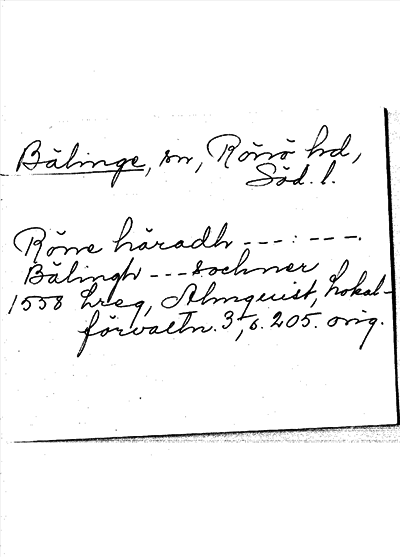 Bälinge, sn, Rönö hd,
Söd. l.
Röne häradh ---:---.
Bälingh --- sochner
1558 hreg, Almquist, Lokal-
förvaltn. 3, s. 205. orig.